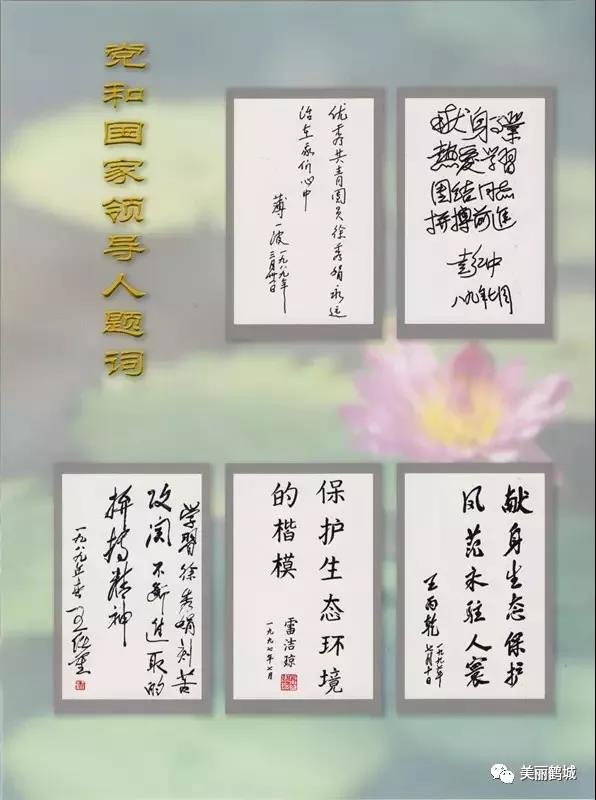 党和国家领导人题词
优秀共青团员徐秀娟永远
活在我们心中
薄一波 一九八九年
献身事業
熱爱学習
团结同志
拼搏前進
彭冲
八九年七月
学習徐秀娟刻苦
攻関不断進取的
拼搏精神
一九八九年春
保护生态环境
的楷模
雷洁琼
一九九七年七月
献身生态保护
风范永驻人寰
王丙乾
一九九七年
七月十日
美丽鹤城